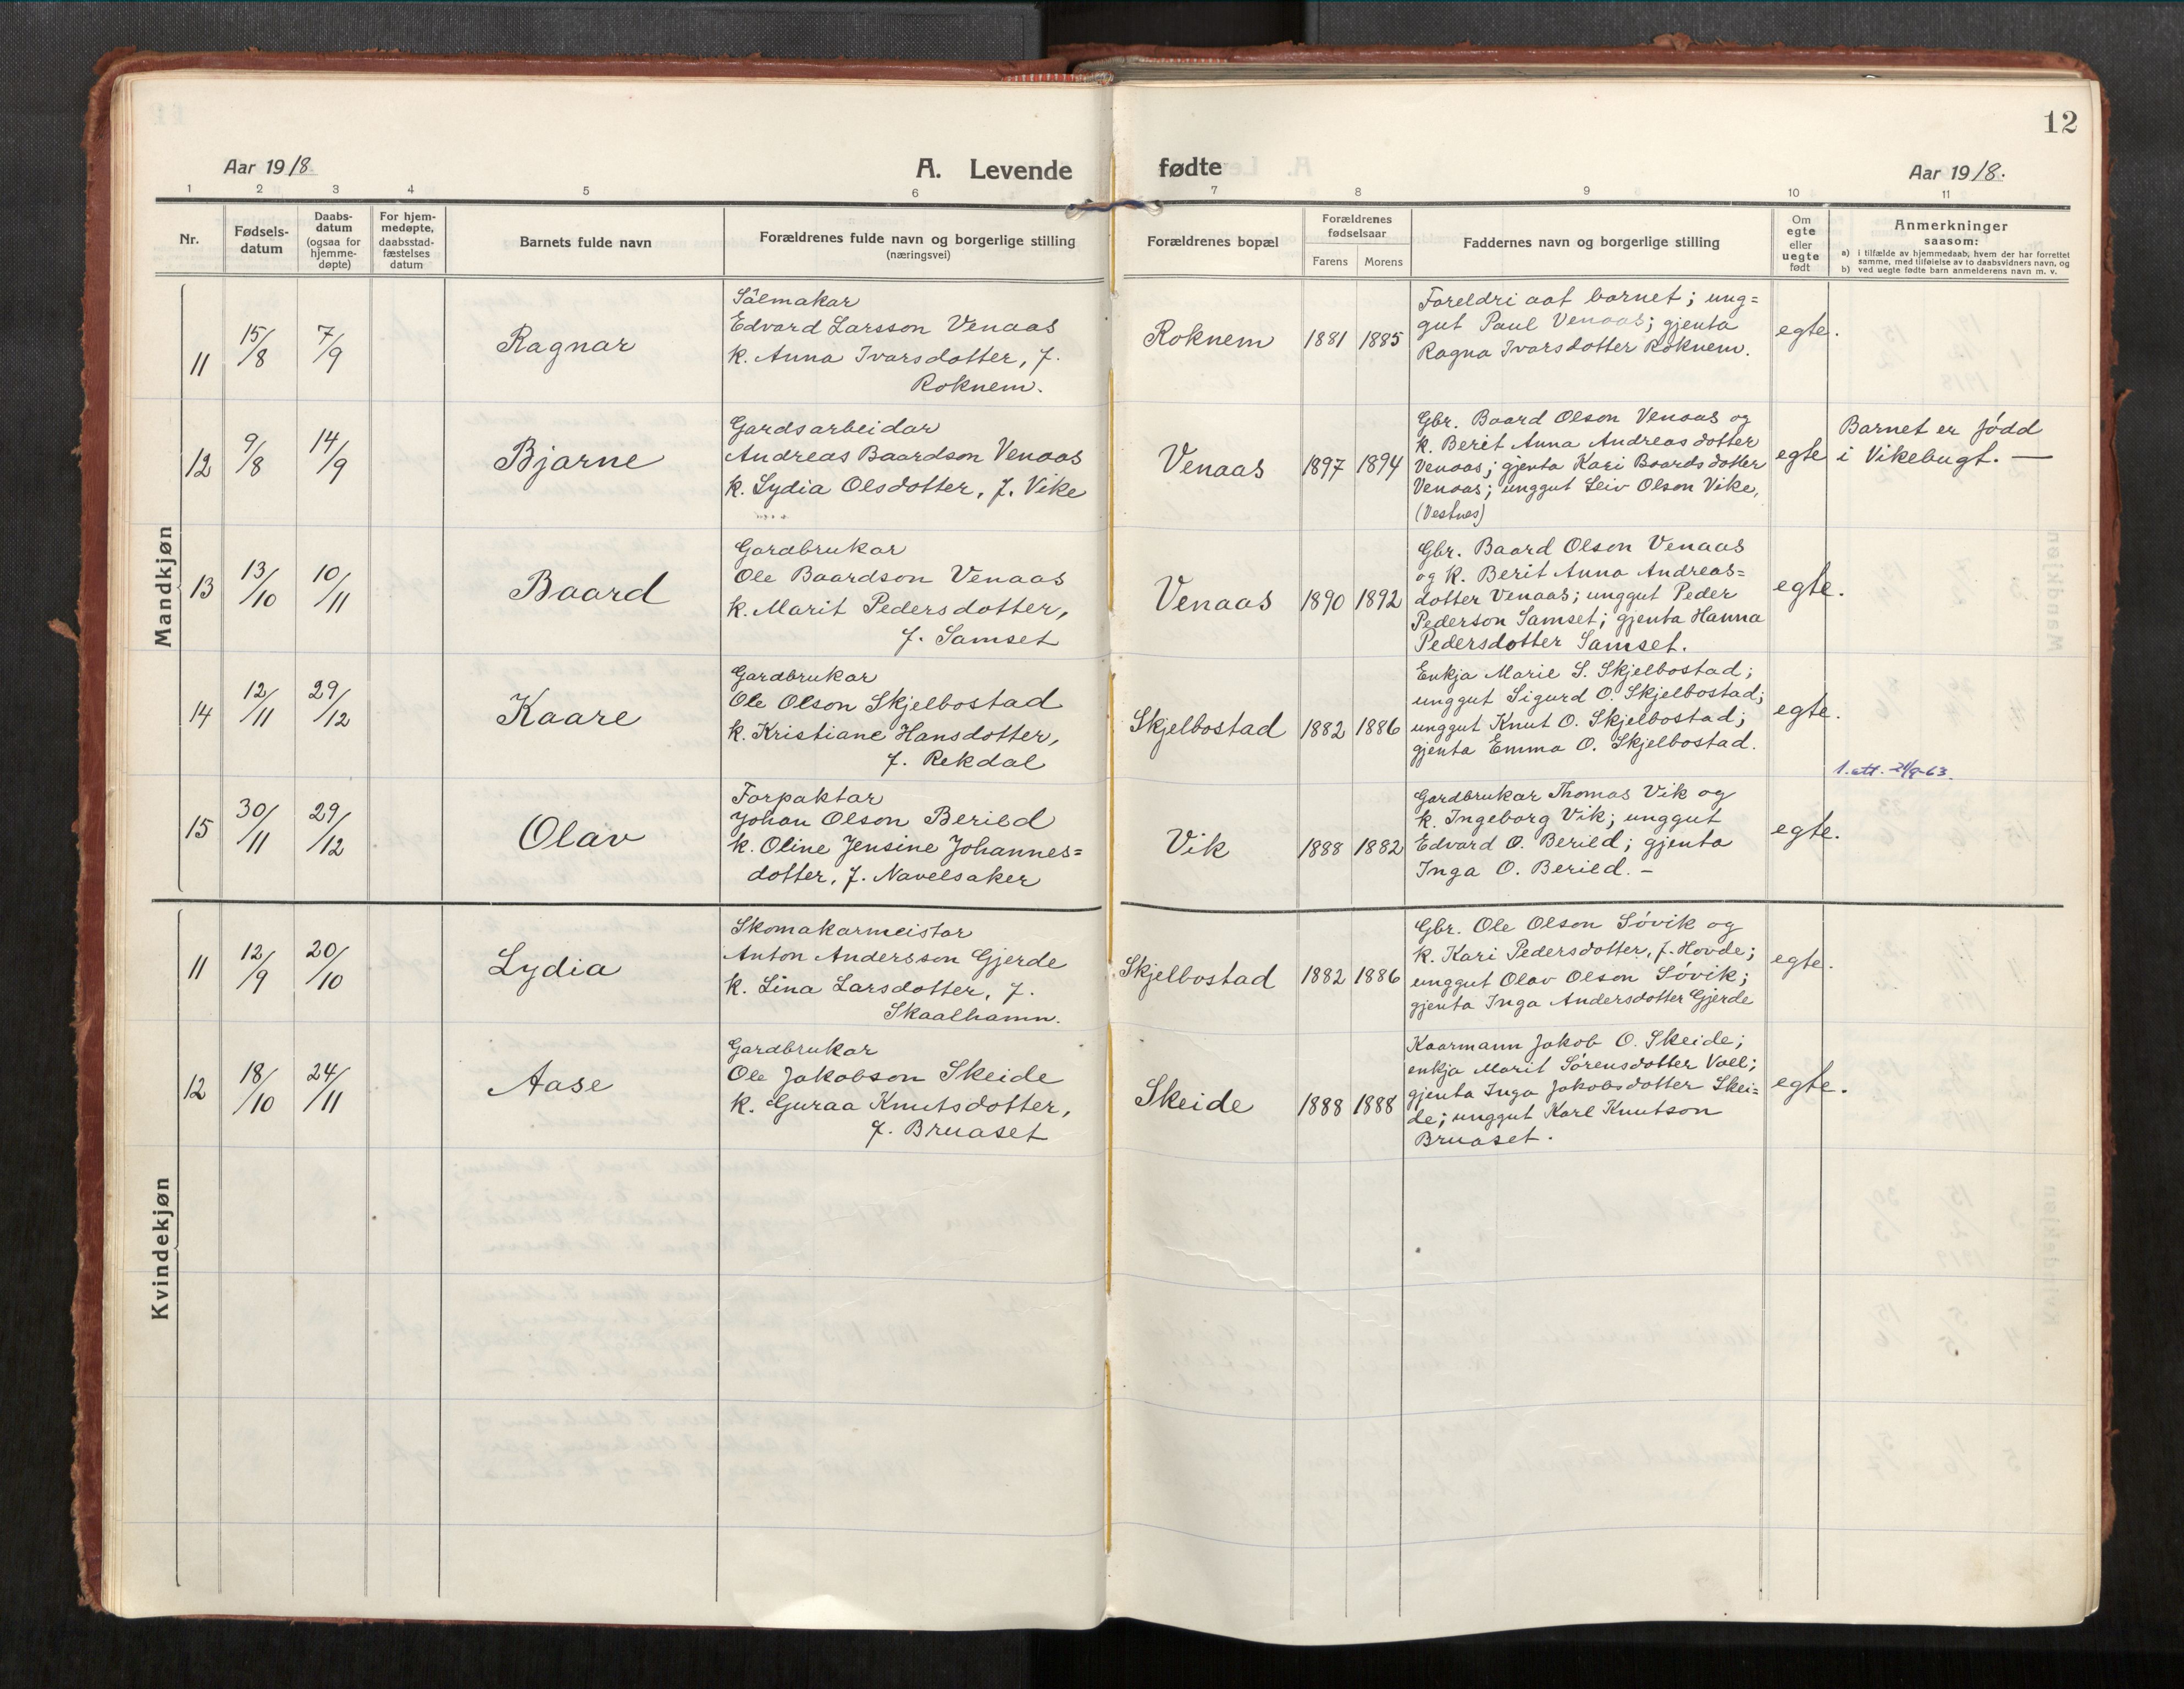 12
Aar 1918.
A. Levende fødte
Aar 1918.
1 2 3 4 5 6 7 8 9 10 11
Nr.
Fødsels-
datum
Daabs-
datum
(ogsaa for
hjemme-
døpte)
For hjem-
medøpte,
daabsstad-
fæstelses
datum
Barnets fulde navn
Forældrenes fulde navn og borgerlige stilling
(næringsvei)
Forældrenes bopæl
Forældrenes
fødselsaar
Farens Morens
Faddernes navn og borgerlige stilling
Om
egte
eller
uegte
født
Anmerkninger
saasom:
a) i tilfælde av hjemmedaab, hvem der har forrettet
samme, med tilføielse av to daabsvidners navn, og
b) ved uegte fødte barn anmelderens navn m. v.
Mandkjøn
11 15/8 7/9 Ragnar
Sålmakar
Edvard Larsson Venaas
k. Anna Ivarsdotter, f.
Roknem.
Roknem 1881 1885
Foreldri aat barnet; ung=
gut Paul Venaas; gjenta
Ragna Ivarsdotter Roknem.
egte.
12 9/8 14/9 Bjarne
Gardsarbeidar
Andreas Baardson Venaas
k. Lydia Olsdotter, f. Vike
Venaas 1897 1894
Gbr. Baard Olson Venaas og
k. Berit Anna Andreasdotter
Venaas; gjenta Kari Baardsdotter
Venaas; unggut Leiv Olson Vike,
(Vestnes)
egte
Barnet er fødd
i Vikebugt. —
13 13/10 10/11 Baard
Gardbrukar
Ole Baardson Venaas
k. Marit Pedersdotter,
f. Samset
Venaas 1890 1892
Gbr. Baard Olson Venaas
og k. Berit Anna Andreas=
dotter Venaas; unggut Peder
Pederson Samset; gjenta Hanna
Pedersdotter Samset.
egte.
14 12/11 29/12 Kaare
Gardbrukar
Ole Olson Skjelbostad
k. Kristiane Hansdotter,
f. Rekdal
Skjelbostad 1882 1886
Enkja Marie S. Skjelbostad;
unggut Sigurd O. Skjelbostad;
unggut Knut O. Skjelbostad;
gjenta Emma O. Skjelbostad.
egte.
15 30/11 29/12 Olav
Forpaktar
Johan Olson Berild
k. Oline Jensine Johannes=
dotter, f. Navelsaker
Vik 1888 1882
Gardbrukar Thomas Vik og
k. Ingeborg Vik; unggut
Edvard O. Berild; gjenta
Inga O. Berild. -
egte.
1. att.
Kvindekjøn
11 12/9 20/10 Lydia
Skomakarmeistar
Anton Andersson Gjerde
k. Lina Larsdotter, f.
Skaalhamn.
Skjelbostad 1882 1886
Gbr. Ole Olson Søvik og
k. Kari Pedersdotter, f. Hovde;
unggut Olav Olson Søvik;
gjenta Inga Andersdotter Gjerde
egte.
12 18/10 24/11 Aase
Gardbrukar
Ole Jakobson Skeide
k. Guraa Knutsdotter,
f. Bruaset
Skeide 1888 1888
Kaarmann Jakob O. Skeide;
enkja Marit Sørensdotter Vael;
gjenta Inga Jakobsdotter Skei=
de; unggut Karl Knutson
Bruaset.
egte.